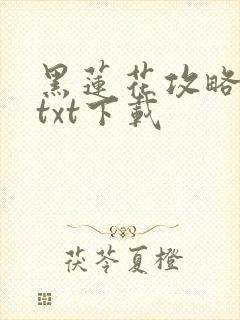 黑蓮花攻略
txt下載
茯苓夏橙